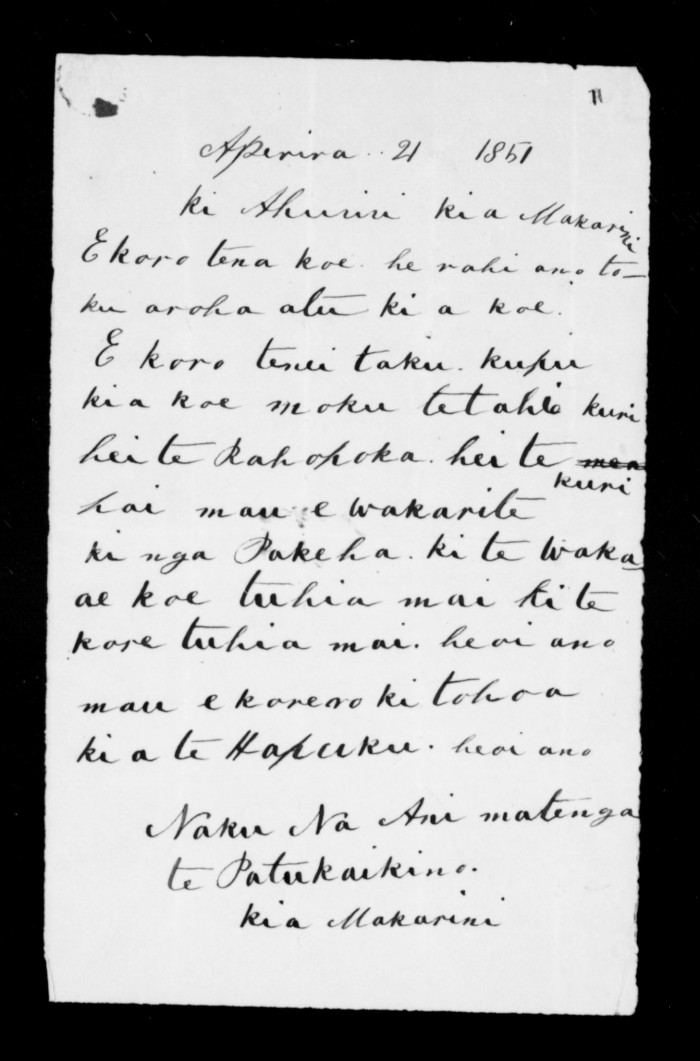 Aperira.. 21 1851
ki Ahuriri kia Makarini
E koro tena koe. he rahi ano to-
ku aroha atu ki a koe.
E koro tenei taku. kupu
kia koe moku tetahi kuri
hei te Rahopoka. hei te
kuri
hai mau e wakarite
ki nga Pakeha. ki te waka
ae koe tuhia mai ki te
kore tuhia mai. heoi ano
mau e korero ki to hoa
ki a te Hapuku. heoi ano
Naku Na Ani matenga
te Patukaikino.
kia Makarini